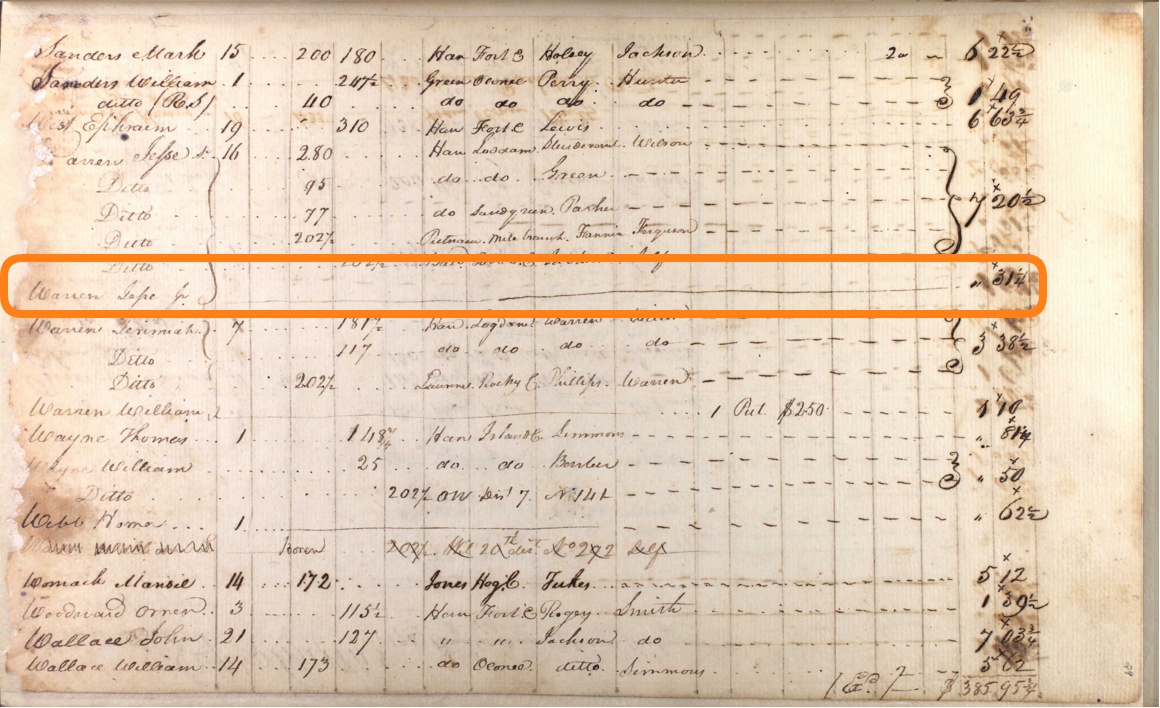 Sanders Mark 15 200 180 Han Fort C Holsey Jackson 20 6 22½
Sanders William 1 247½ Green Oconee Perry Hunter
ditto (R.S) 40 do do do do 1 49
West Ephraim 19 310 Han Fort C Lewis 6 63¾
Warren Jesse Sr 16 280 Han Wilson
Ditto 95 do do Green
Ditto 77 do Sandy run Parker 7 20½
Ditto 202½ Putnam Mile branch Fannin Ferguson
Ditto 202½ Self
Warren Jesse Jr " 31¼
Warren Jeremiah 7 187½ Han Logdam Warren
Ditto 117 do do do do 3 38½
Ditto 202½ Laurens Rocky C Phillips Warren
Warren William 1 Put $250 1 10
Wayne Thomas 1 148¾ Han Island C Simmons " 81¼
Wayne William 25 do do Bowber
Ditto 202½ Dist 7 No 141 " 50
Webb Homer 1 " 62½
202½ 20th dist No 272 Self
Womack Mansil 14 172 Jones Hog C Fukes 5 12
Woodward Orren 3 115½ Han Fort C Rogey Smith 1 39½
Wallace John 21 127 " " Jackson do 7 03¾
Wallace William 14 173 do Oconee ditto Simmons 5 62
$ 385.95¾